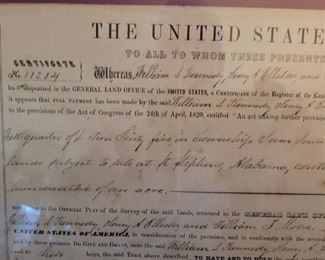 THE UNITED STATE
TO ALL TO WHOM THESE PRESENT
CERTIFICATE
No. 11204
Whereas, William S Kennedy, Henry A Ellison and
deposited in the GENERAL LAND OFFICE of the UNITED STATES, a Certificate of the Register of the Land
it appears that FULL PAYMENT has been made by the said William S Kennedy, Henry A
to the provisions of the Act of Congress of the 24th of April, 1820, entitled "An act making further provision
quarter of Section Thirty five, in Township Seven
lands subject to sale at St Stephens, Alabama, cont
hundredths of an acre,
according to the Official Plat of the Survey of the said Lands, returned to the GENERAL LAND
William S Kennedy, Henry A Ellison and William
UNITED STATES OF AMERICA, in consideration of the premises, and in conformity with the several
and by these presents Do GIVE AND GRANT, unto the said William S Kennedy, Henry A
heirs, the said Tract above described: TO HAVE AND TO HOLD the